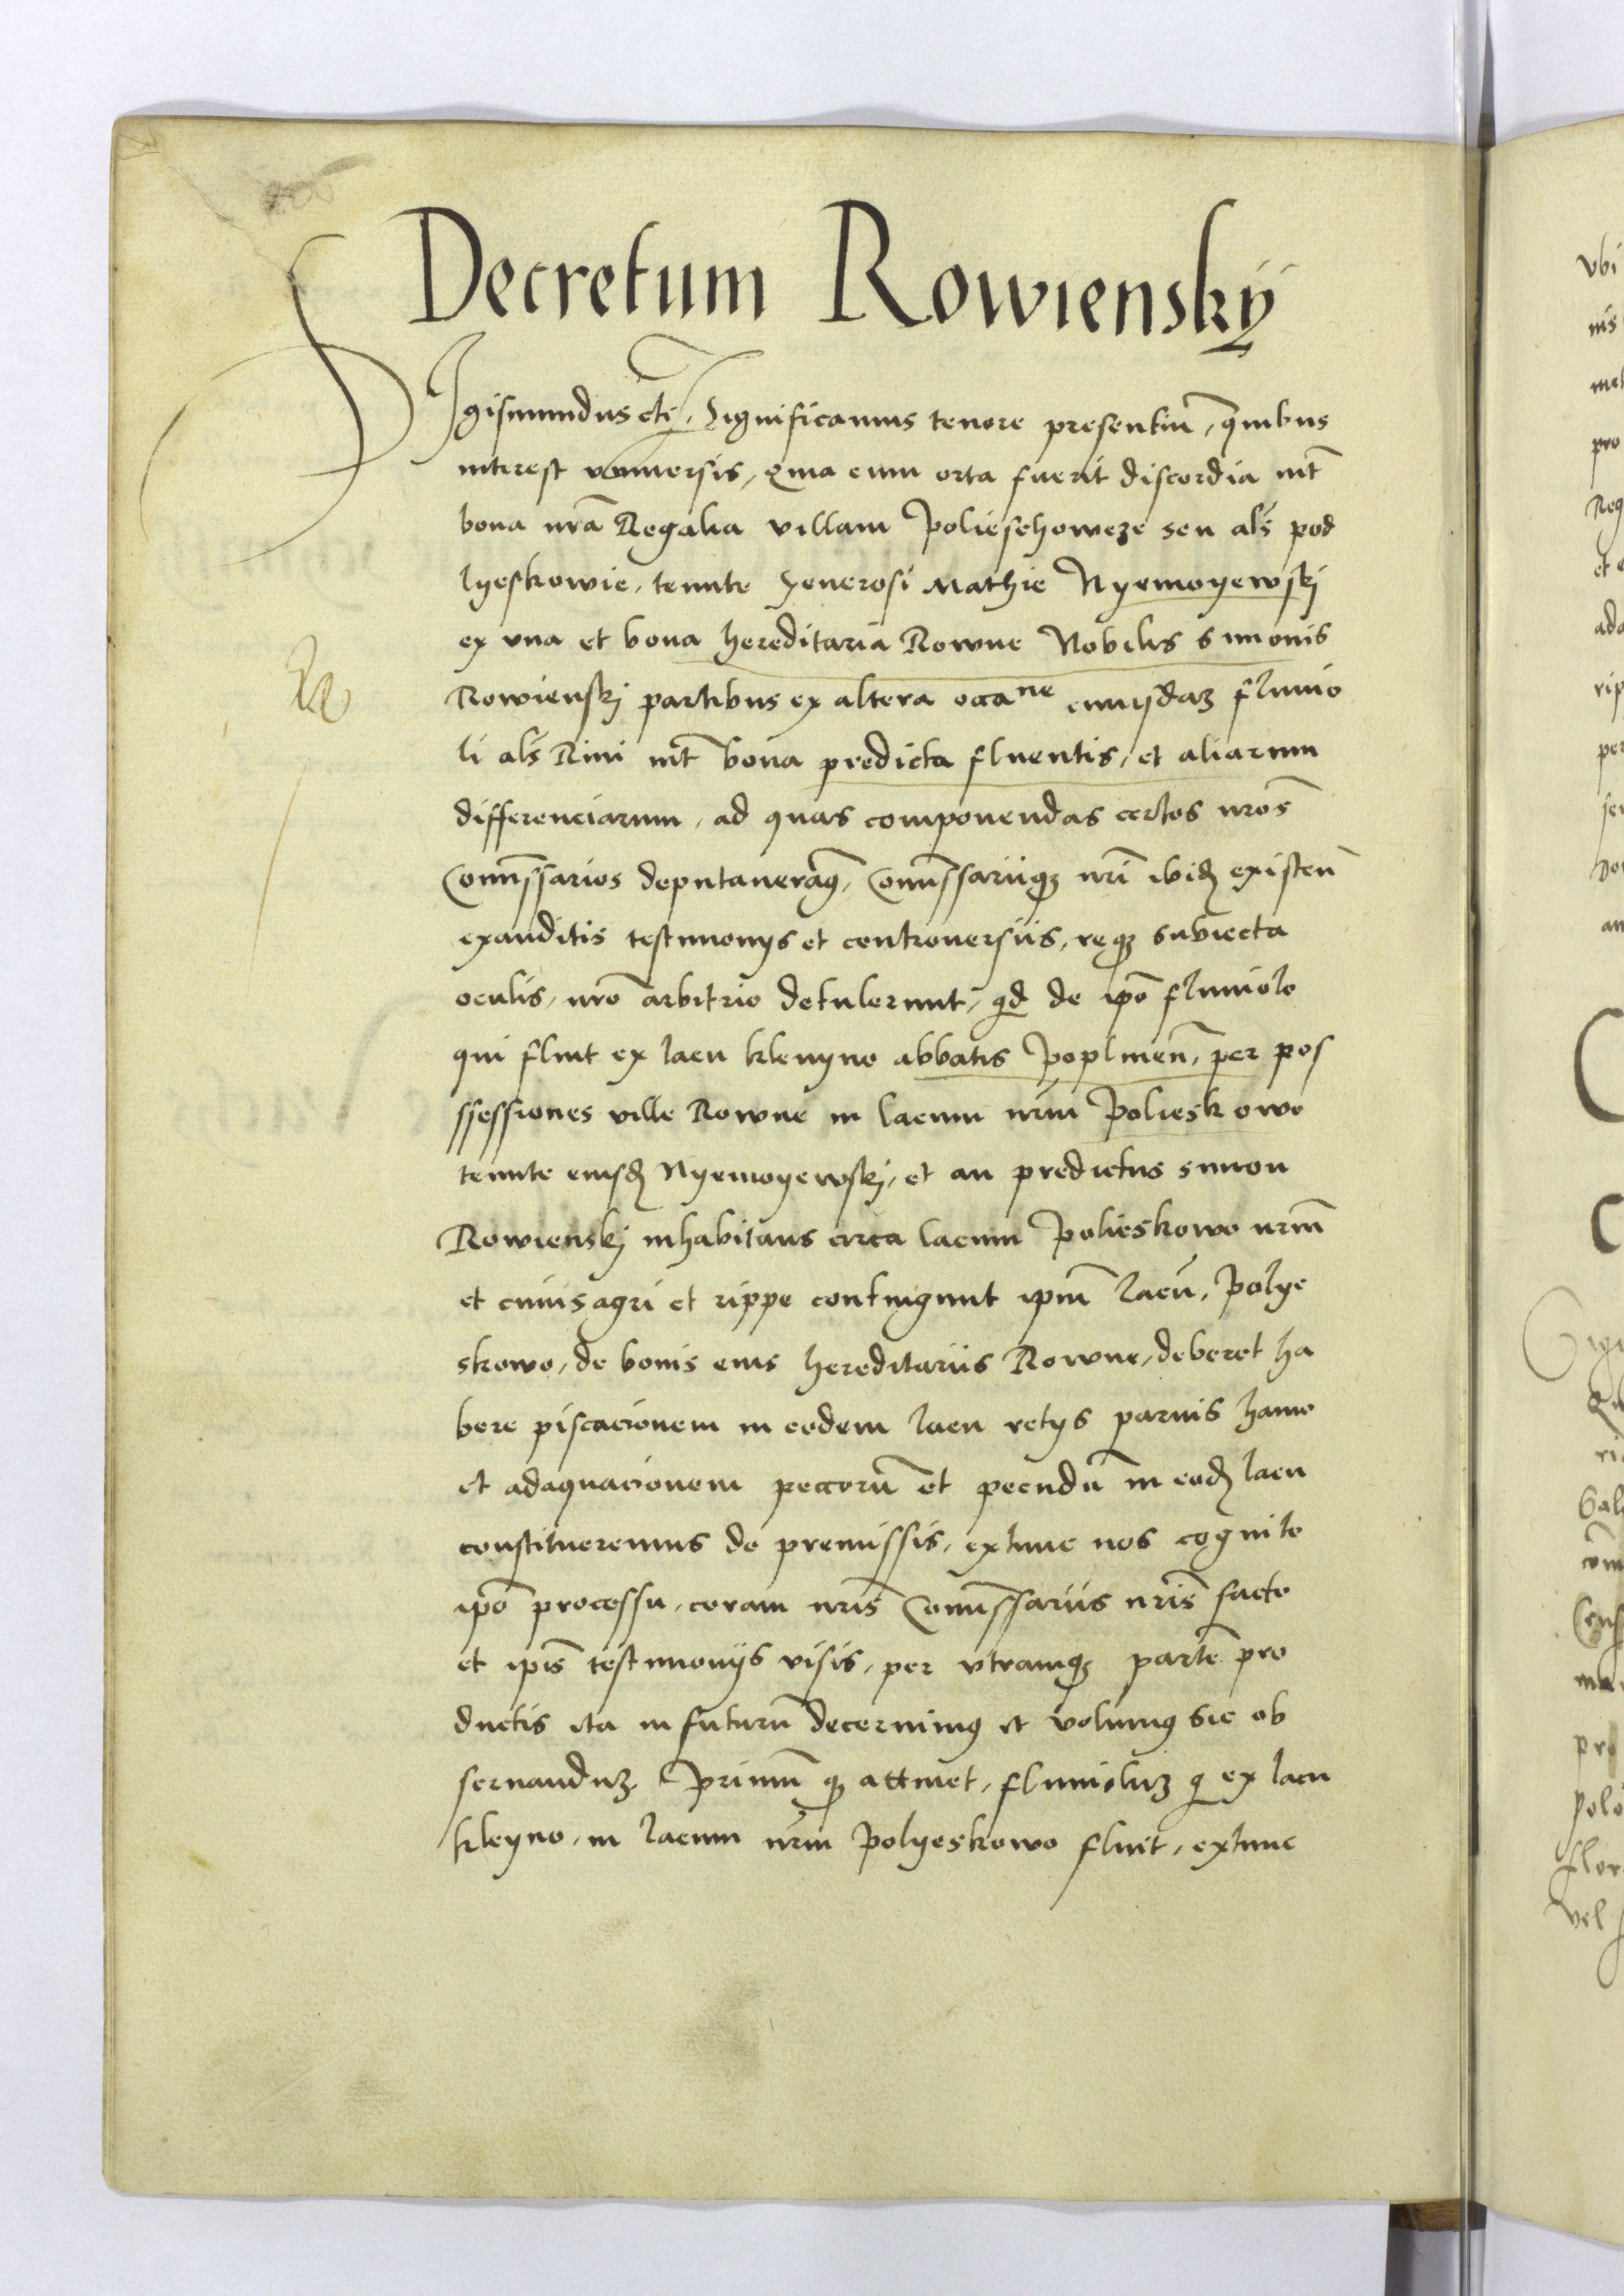 Decretum Rowienskÿ
SIgismundus etc̄. Significamus tenore presentiū, quibus
interest vniuersis, Quia cum orta fuerit discordia int̄
bona nr̄a Regalia villam Polieschowcze seu als̄ pod
lyeskowie, tenute Generosi Mathie Nyemoyewskj
ex vna et bona hereditaria Rowne Nobilis Simonis
Rowienskj partibus ex altera occaⁿᵉ cuiusdaꝫ fluuio
li als̄ Rivi int̄ bona predicta fluentis, et aliarum
differenciarum, ad quas componendas certos nr̄os
Com̄issarios deputaueramꝰ, Com̄issariiqꝫ nr̄i ibid̄ existen̄
exauditis testimonijs et controuersiis, reqꝫ subiecta
oculis, nr̄o arbitrio detulerunt, qd̄ de ip̄o fluuiolo
qui fluit ex lacu klenyno abbatis Poplinen̄, per pos
ssessiones ville Rowne in lacum nr̄m Polieskowo
tenute eiusd̄ Nyemoyewskj, et an predictus Simon
Rowienskj inhabitans circa lacum Polieskowo nr̄m
et cuius agri et rippe contingunt ip̄m lacū, Polye
skowo, de bonis eius hereditariis Rowne, deberet ha
bere piscacionem in eodem lacu retijs paruis hamo
et adaquacionem peccorū et pecudū in eod̄ lacu
constitueremus de premissis, extunc nos cognito
ip̄o processu, coram nr̄is Com̄issariis nr̄is facto
et ip̄is testimonijs visis, per vtramqꝫ partē pro
ductis ita in futurū decernimꝰ et volumꝰ sic ob
seruanduꝫ Primū qꝫ attinet, fluuioluꝫ q̄ ex lacu
kleyno, in lacum nr̄m Polyeskowo fluit, extunc
vbi
nis
pro
Reg
et